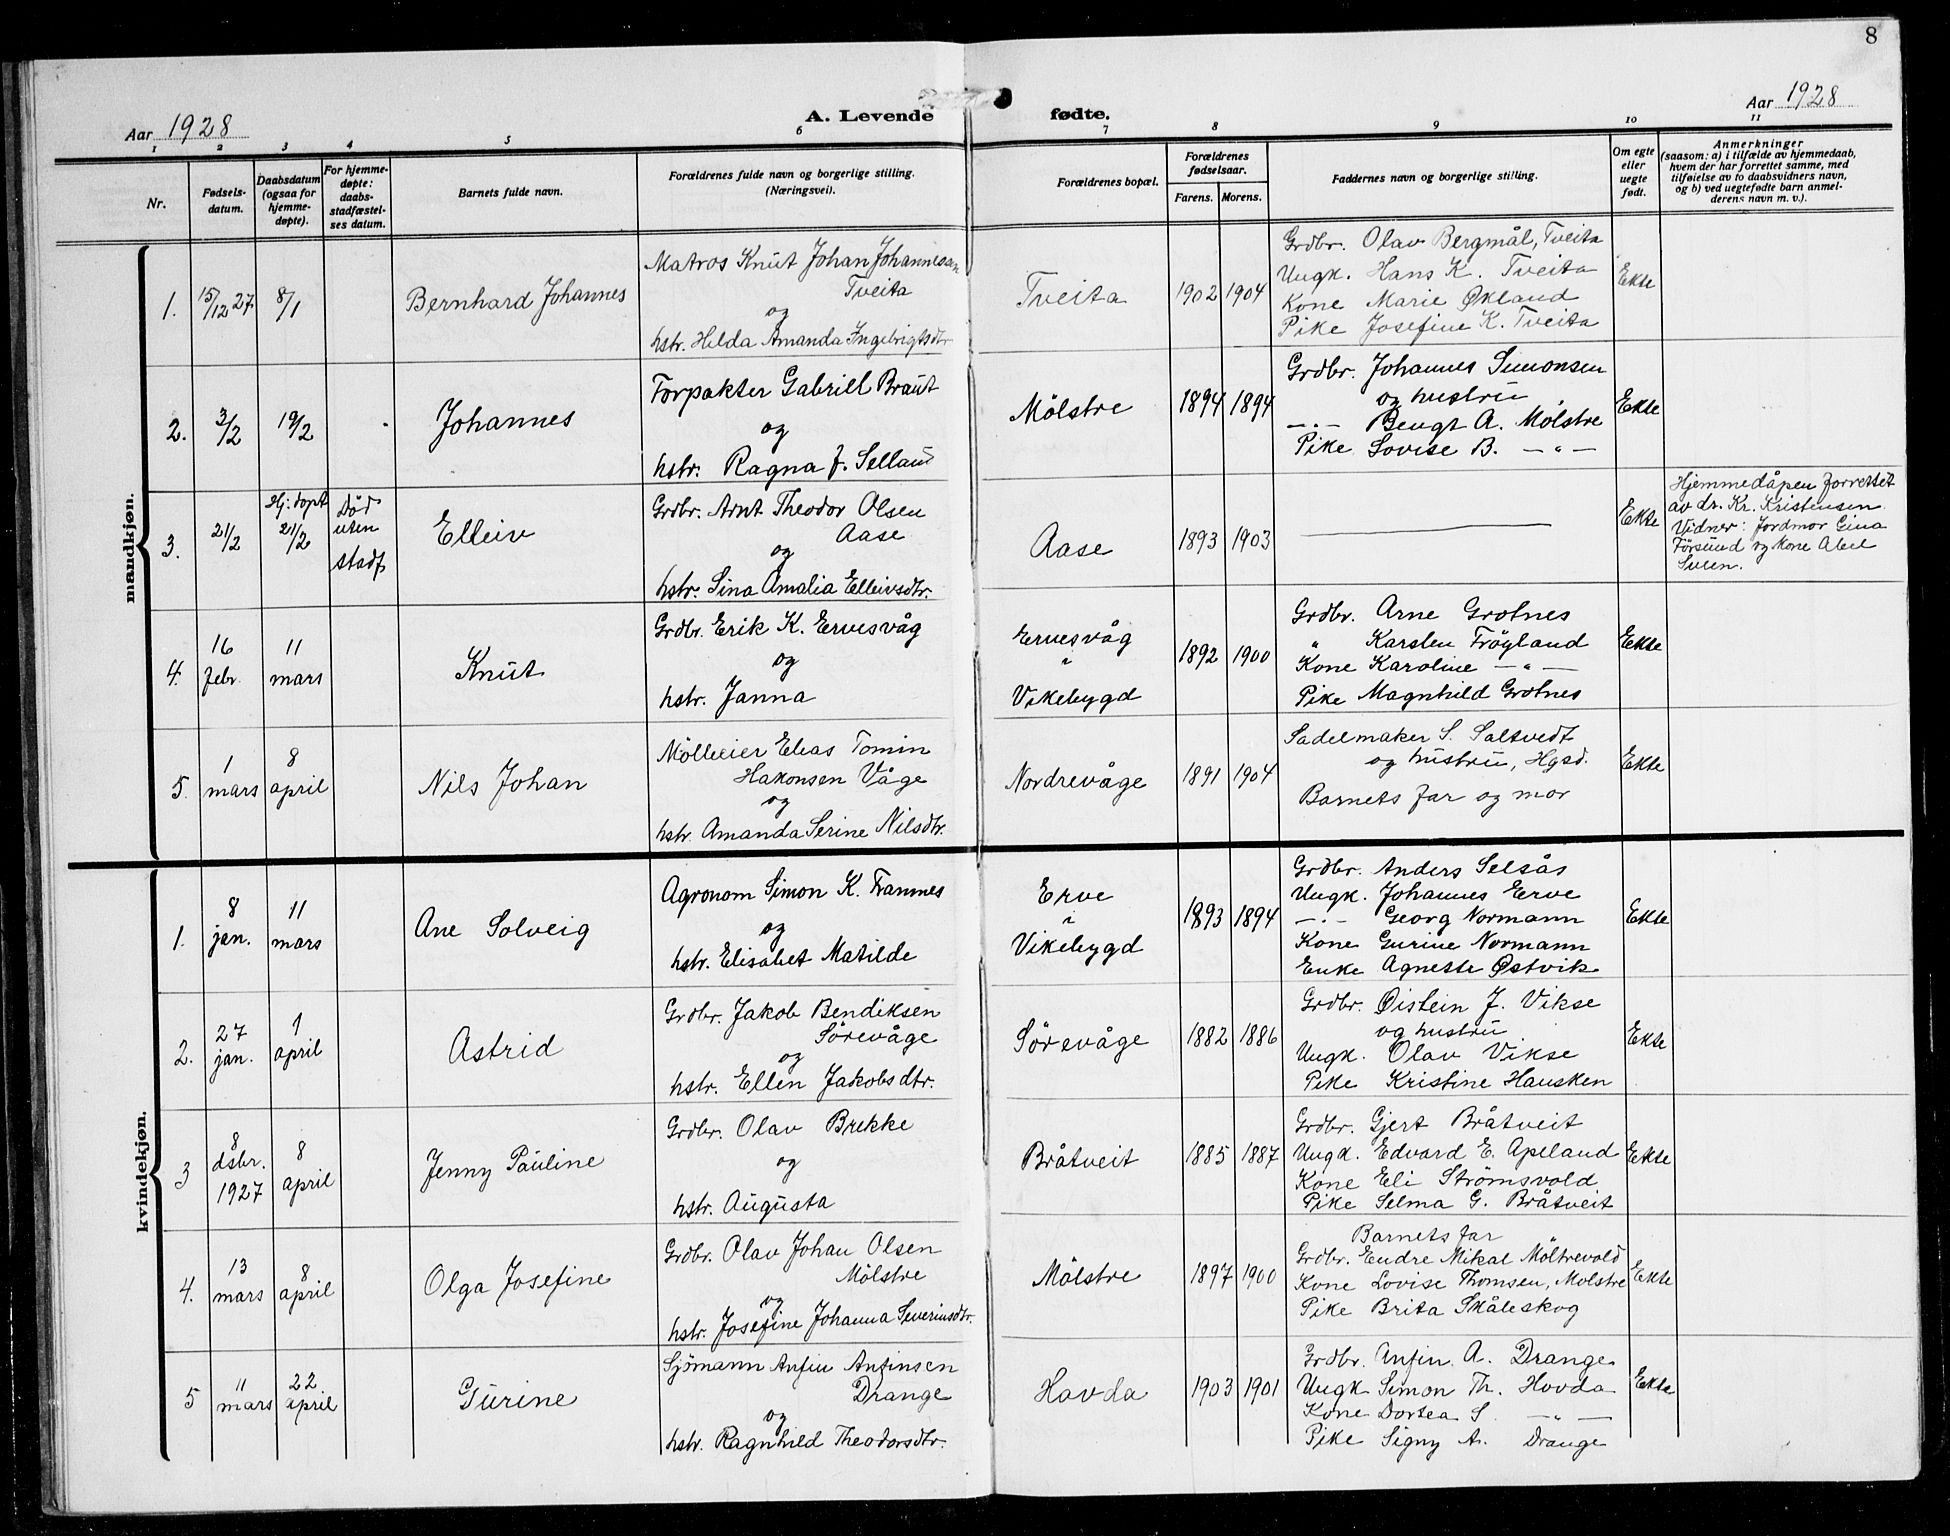 8
Aar 1928
A. Levende fødte.
Aar 1928
1 2 3 4 5 6 7 8 9 10 11
Nr.
Fødsels-
datum.
Daabsdatum
(ogsaa for
hjemme-
døpte).
For hjemme-
døpte:
daabs-
stadfæstel-
ses datum.
Barnets fulde navn.
Forældrenes fulde navn og borgerlige stilling.
(Næringsvei).
Forældrenes bopæl.
Forældrenes
fødselsaar.
Farens. Morens.
Faddernes navn og borgerlige stilling.
Om egte
eller
uegte
født.
Anmerkninger
(saasom: a) i tilfælde av hjemmedaab,
hvem der har forrettet samme, med
tilføielse av to daabsvidners navn,
og b) ved uegtefødte barn anmel-
derens navn m. v.).
mandkjøn.
1.
15/12 27.
8/1
Bernhard Johannes
Matros Knut Johan Johannesen
Tveita
og
hstr. Hilda Amanda Ingebrigtsdtr
Tveita
1902 1904
Grdbr. Olav Bergmål, Tveita
Ungk. Hans K. Tveita
Kone Marie Økland
Pike Josefine K. Tveita
Ekte
2.
3/2
19/2
Johannes
Forpakter Gabriel Braut
og
hstr. Ragna J. Selland
Mølstre
1894 1894
Grdbr. Johannes Simonsen
og hustru
—·— Bengt A. Mølstre
Pike Lovise B. —"—
Ekte
3.
21/2
Hj: døpt
21/2
Død
uten
stadf.
Elleiv
Grdbr. Arnt Theodor Olsen
Aase
og
hstr. Sina Amalia Elleivsdtr.
Aase
1893 1903
Ekte
Hjemmedåpen forrettet
av dr. Kr. Kristensen
Vidner: Jordmor Gina
Førsund og kone Abel
4.
16
febr.
11
mars
Knut
Grdbr. Erik K. Ervesvåg
og
hstr. Janna
Ervesvåg
i
Vikebygd
1892 1900
Grdbr. Arne Grotnes
" Karsten Frøyland
Kone Karoline —"—
Pike Magnhild Grotnes
Ekte
5.
1
mars
8
april
Nils Johan
Mølleeier Elias Tomin
Hakonsen Våge
og
hstr. Amanda Serine Nilsdtr.
Nordrevåge
1891 1904
Sadelmaker S. Saltvedt
og hustru, Hgsd.
Barnets far og mor
Ekte
kvindekjøn.
1.
8
jan.
11
mars
Ane Solveig
Agronom Simon K. Trannes
og
hstr. Elisabet Matilde
Erve
i
Vikebygd
1893 1894
Grdbr. Anders Selsås
Ungk. Johannes Erve
—·— Georg Normann
Kone Gurine Normann
Enke Agnete Østvik
Ekte
2.
27
jan.
1
april
Astrid
Grdbr. Jakob Bendiksen
Sørevåge
og
hstr. Ellen Jakobsdtr.
Sørevåge
1882 1886
Grdbr. Øistein J. Vikse
og hustru
Ungk. Olav Vikse
Pike Kristine Hausken
Ekte
3
8
dsbr.
1927
8
april
Jenny Pauline
Grdbr. Olav Brekke
og
hstr. Augusta
Bråtveit
1885 1887
Grdbr. Gjert Bråtveit
Ungk. Edvard E. Apeland
Kone Eli Strømsvold
Pike Selma G. Bråtveit
Ekte
4.
13
mars
8
april
Olga Josefine
Grdbr. Olav Johan Olsen
Mølstre
og
hstr. Josefine Johanna Severinsdtr.
Mølstre
1897 1900
Barnets far
Grdbr. Endre Mikal Møltrevold
Kone Lovise Thomsen, Mølstre
Pike Brita Skåleskog
Ekte
5
11
mars
22
april
Gurine
Sjømann Anfin Anfinsen
Drange
og
hstr. Ragnhild Theodorsdtr.
Hovda
1903 1901
Grdbr. Anfin A. Drange
Ungk Simon Th. Hovda
Kone Dortea S —"—
Pike Signy A. Drange
Ekte